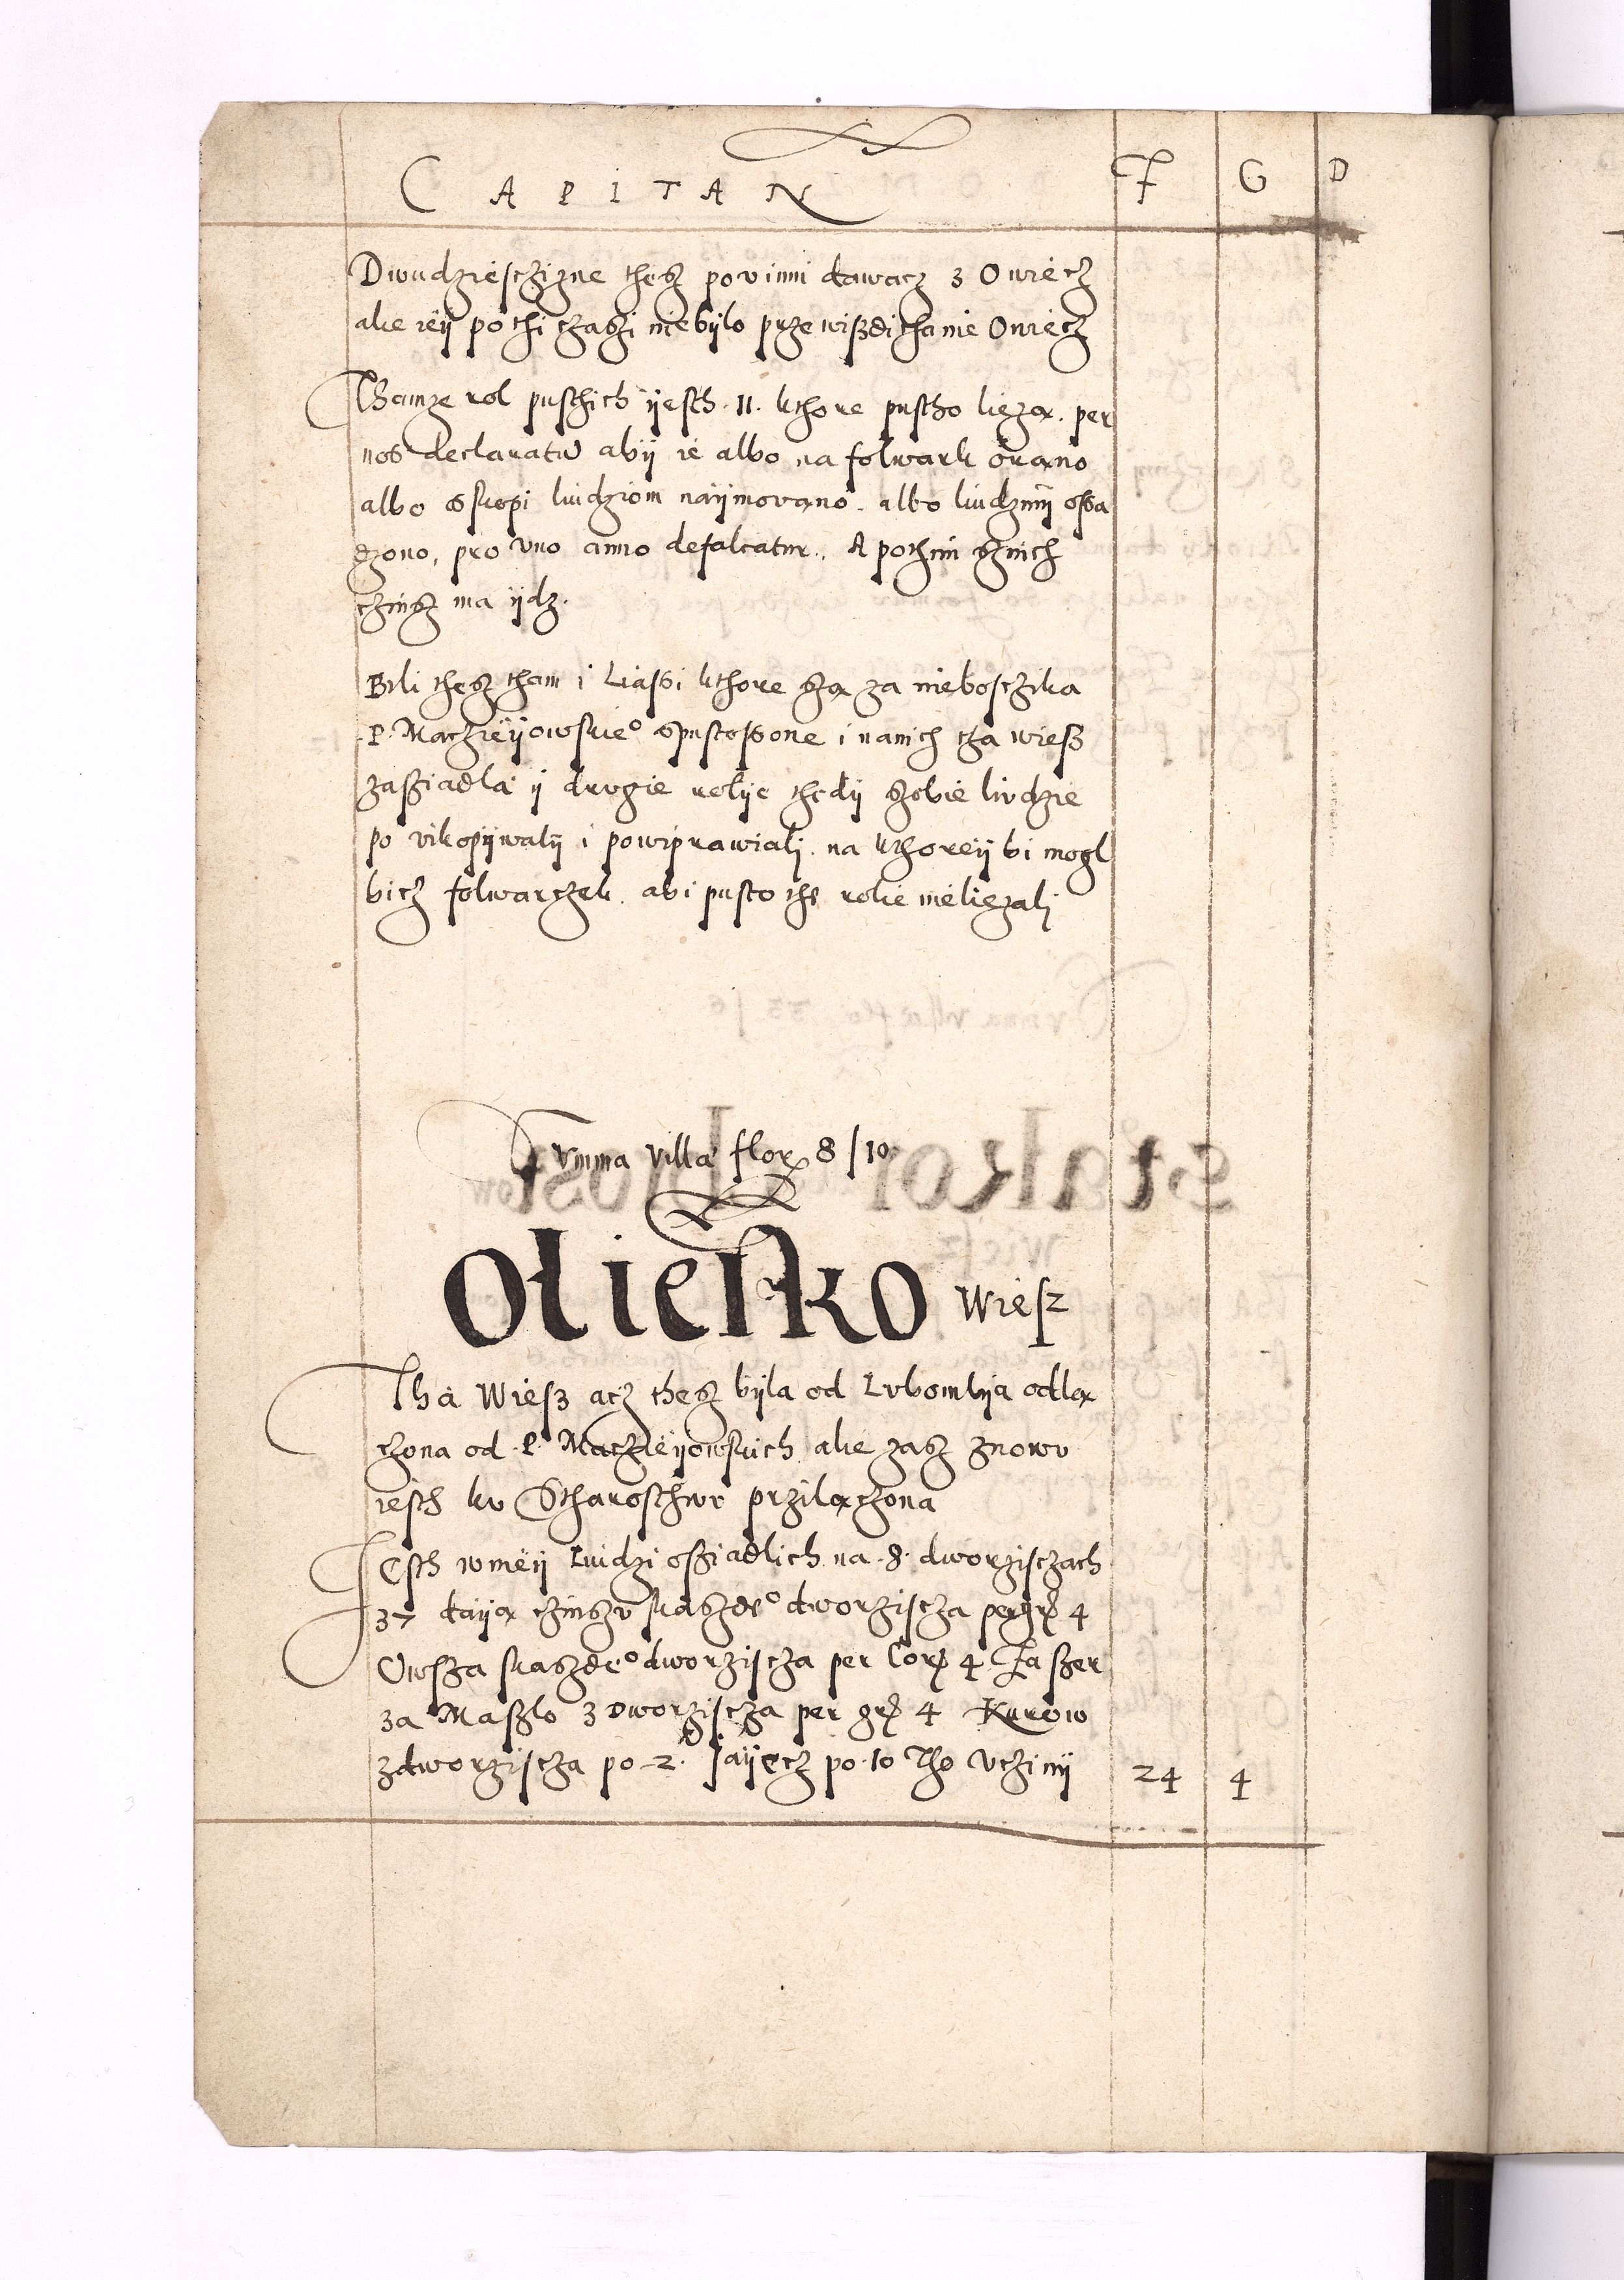 CAPITAN F G D
Dwudziesczizne thesz powinni dawacz z Owiecz
alie ieÿ po thi czaszi niebÿlo prze wiszdichanie Owiecz
Thamze rol pusthich ÿesth 11. kthore pustho liezą. per
nos declaratũ abÿ ie albo na folwark orano
albo s skopi liudziom naÿmowano. albo liudzmÿ ossa
dzono, pro vno anno defalcatur. A pothim sznich
czinsz ma ÿdz.
Bili thesz tham i Liassi kthore szą za niebosczika
P. Macziëÿowskie° spustossone i nanich tha wiesz
zasziadla ÿ drugie rolÿe thedÿ szobie liudzie
po vikopÿwalÿ i powiprawialj na kthoreÿ bi mogl
bicz folwarczek. abi pusto the rolie nieliezalj
Summa villæ flor 8/10
Oliesko Wiesz
Tha Wiesz acz thesz bÿla od Lubomlÿa odlą
czona od P. Macziëÿowskich alie zasz znowu
iesth ku Stharosthwu przilączona
Iesth wnieÿ Liudzi osziadlich na 8. dworzisczach
37 daÿą czinszu skaszde° dworziscza per gr 4
Owsza skaszde° dworziscza per Cor 4
za Maszlo z Dworziscza per gr 4 Kurow
zdworziscza po 2. Jaÿecz po 10 Tho Vczinÿ 24 4